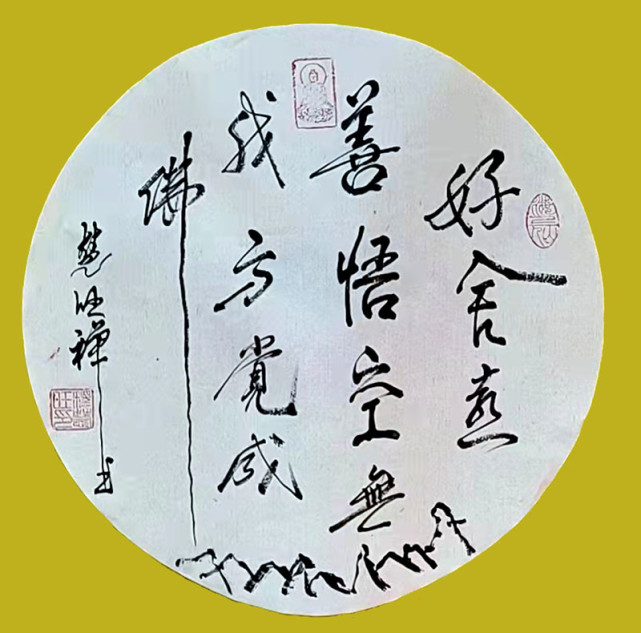 好舍喜
善悟空無
我方覺成
佛
慧旺禪书